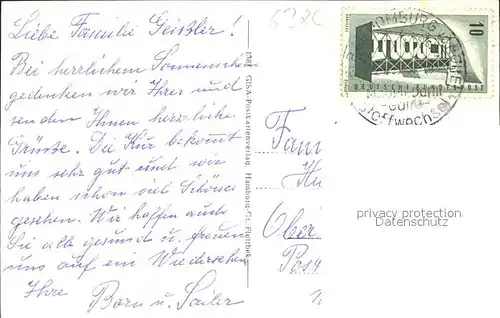 Liebe Familie Geißler!
Bei herrlichem Sonnenschein
gedenken wir Ihrer und
senden Ihnen herzliche
Grüsse. Die Kür bekommt
uns sehr gut und wir
haben schon viel Schönes
gesehen. Wir hoffen auch
Sie alle gesund u. freuen
uns auf ein Wiedersehen
Ihre
Born u. Sailer
GISA-Postkartenverlag, Hamburg-Gr. Flottbek
10
DEUTSCHE BUNDESPOST
HOMBURG
-Gärten-
Stoffwechsel
Fam
Ober
Post
privacy protection
Datenschutz